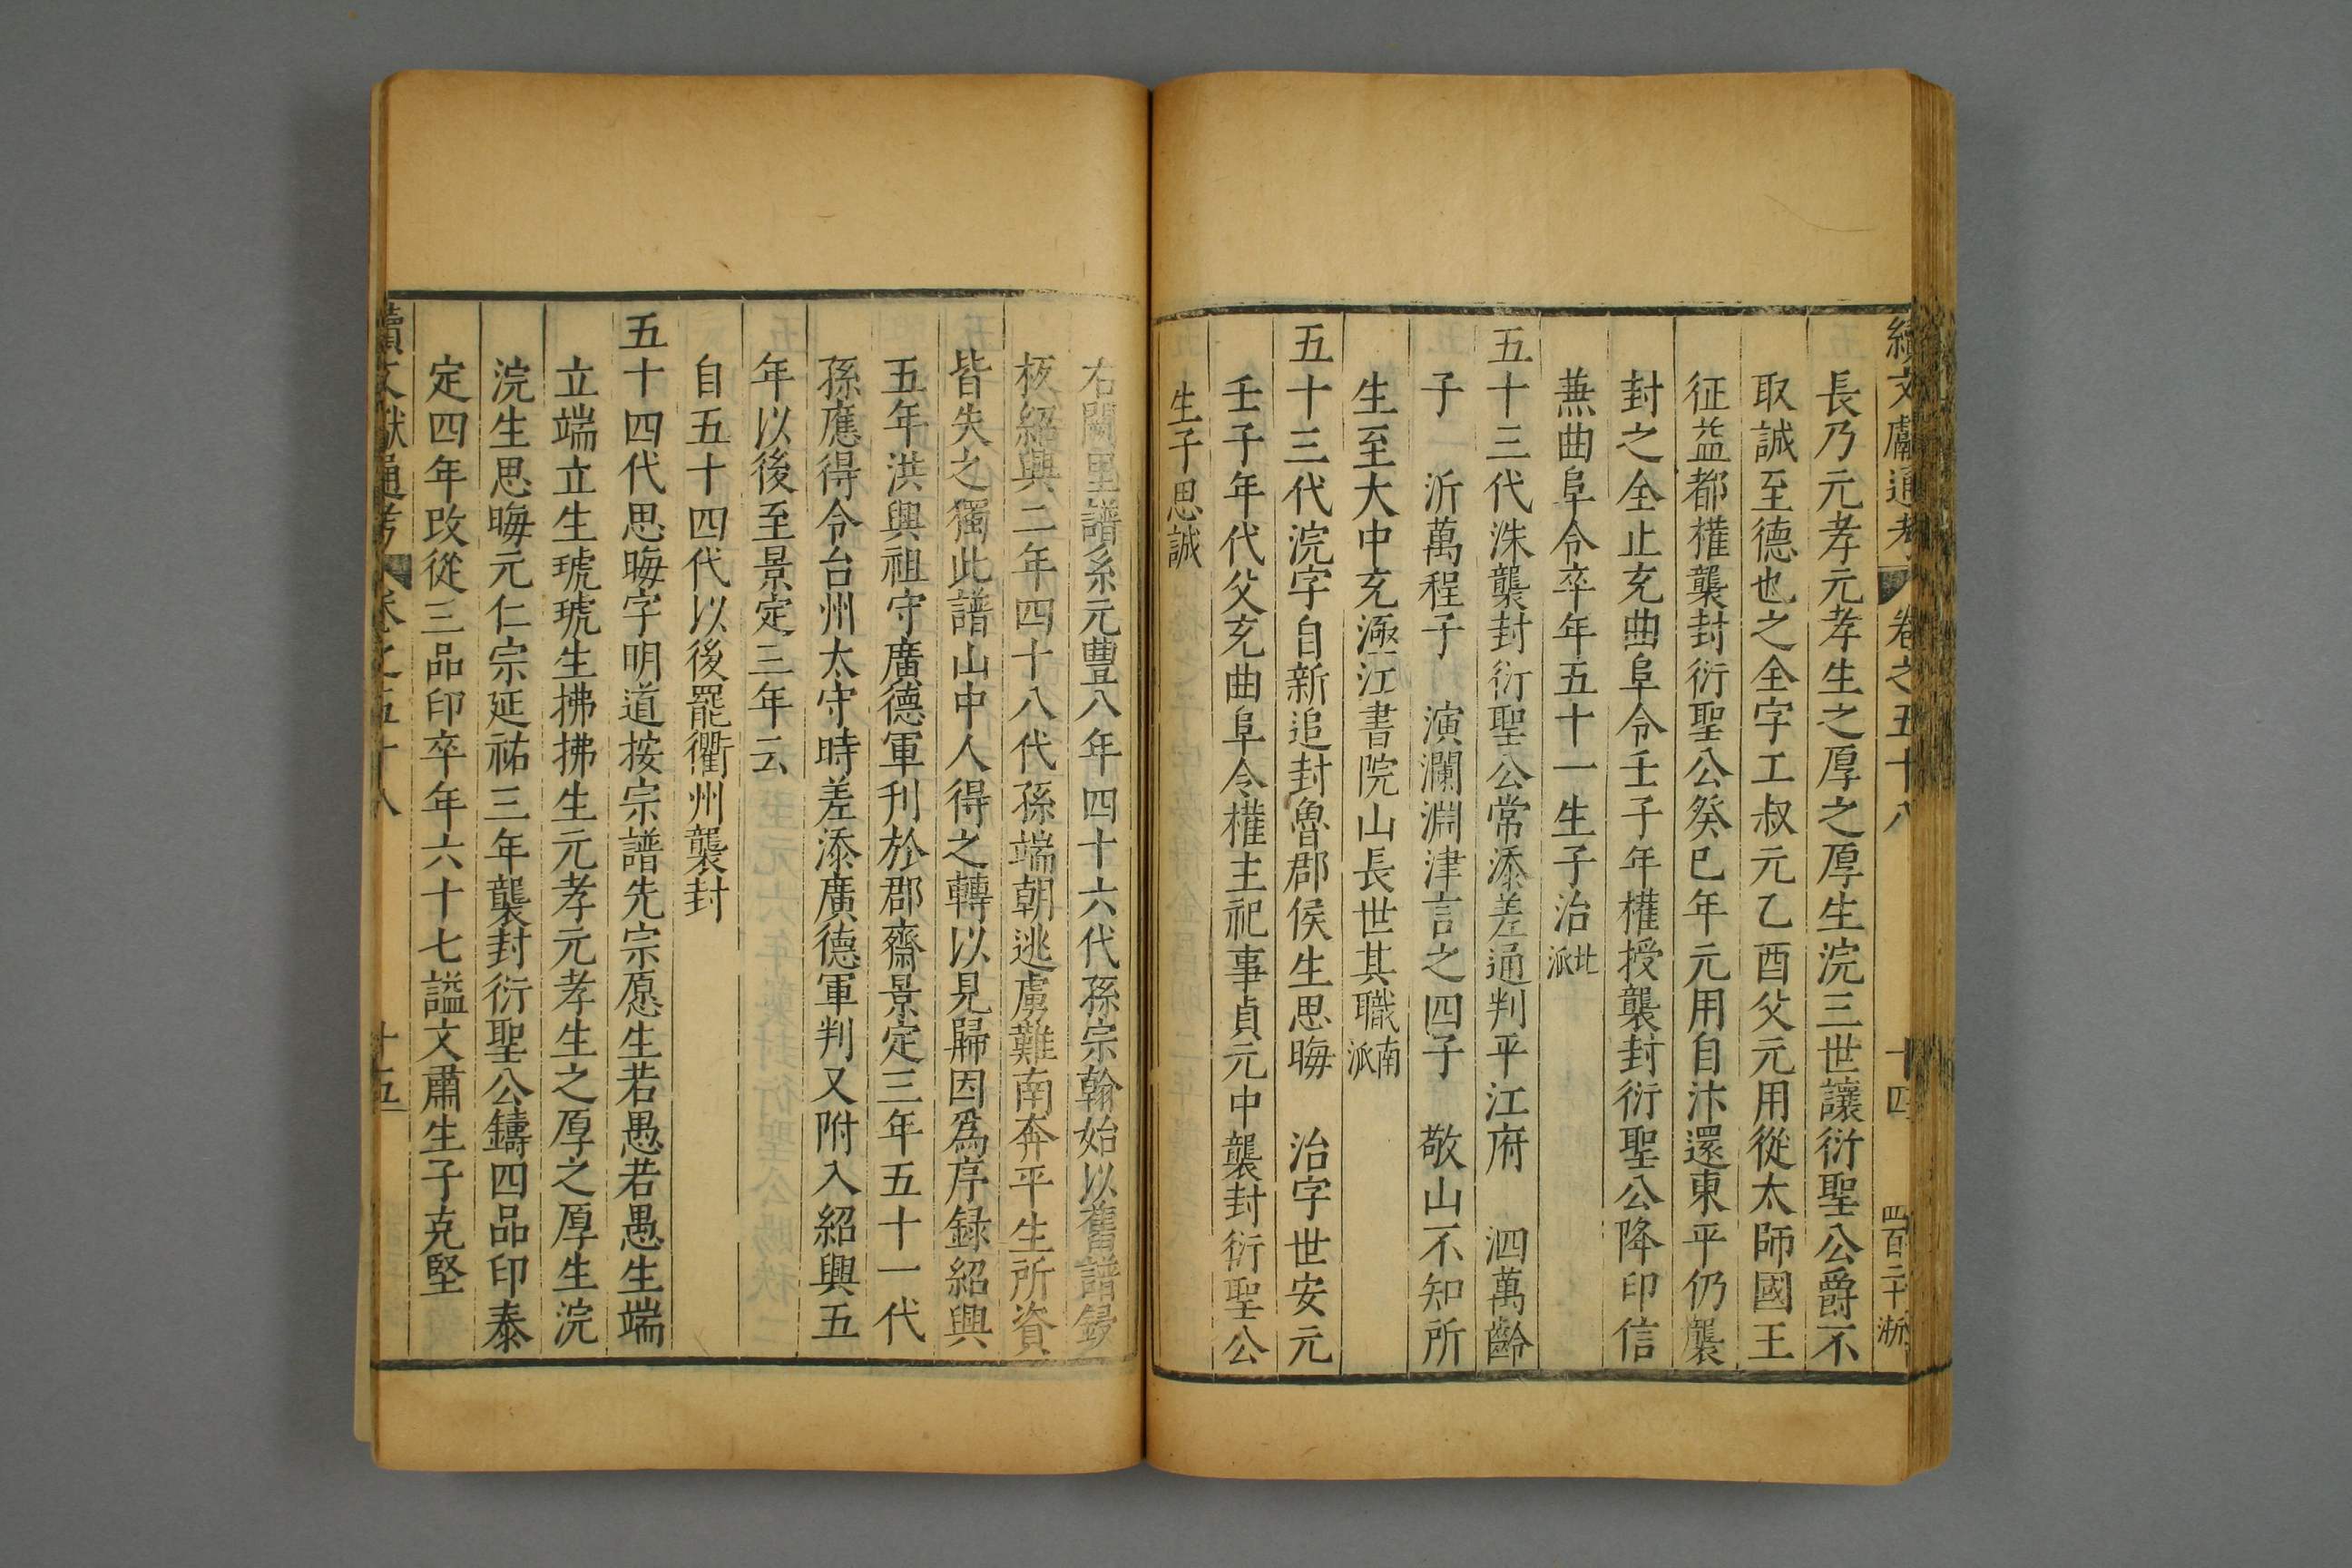 續文獻通考 卷之五十八 十四 四百二十 浙
長乃元孝元孝生之厚之厚生浣三世讓衍聖公爵不
取誠至德也之全字工叔元乙酉父元用從太師國王
征益都權襲封衍聖公癸巳年元用自汴還東平仍襲
封之全止充曲阜令壬子年權授襲封衍聖公降印信
蕪曲阜令卒年五十一生子治北派
五十三代洙襲封衍聖公常添差通判平江府 泗萬齡
子 沂萬程子 演瀾淵津言之四子 敬山不知所
生至大中充 江書院山長世其職南派
五十三代浣字自新追封魯郡侯生思晦 治字世安元
壬子年代父充曲阜令權主祀事貞元中襲封衍聖公
生子思誠
右闕里譜系元豐八年四十六代孫宗翰始以舊譜鋟
板紹興二年四十八代孫端朝逃虜難南奔平生所資
皆失之獨此譜山中人得之轉以見歸因爲序録紹興
五年洪興祖守廣德軍刊於郡齋景定三年五十一代
孫應得令台州太守時差添廣德軍判又附入紹興五
年以後至景定三年云
自五十四代以後罷衢州襲封
五十四代思晦字明道按宗譜先宗愿生若愚若愚生端
立端立生琥琥生拂拂生元孝元孝生之厚之厚生浣
浣生思晦元仁宗延祐三年襲封衍聖公鑄四品印泰
定四年改從三品印卒年六十七謚文肅生子克堅
續文獻通考 卷之五十八 十五